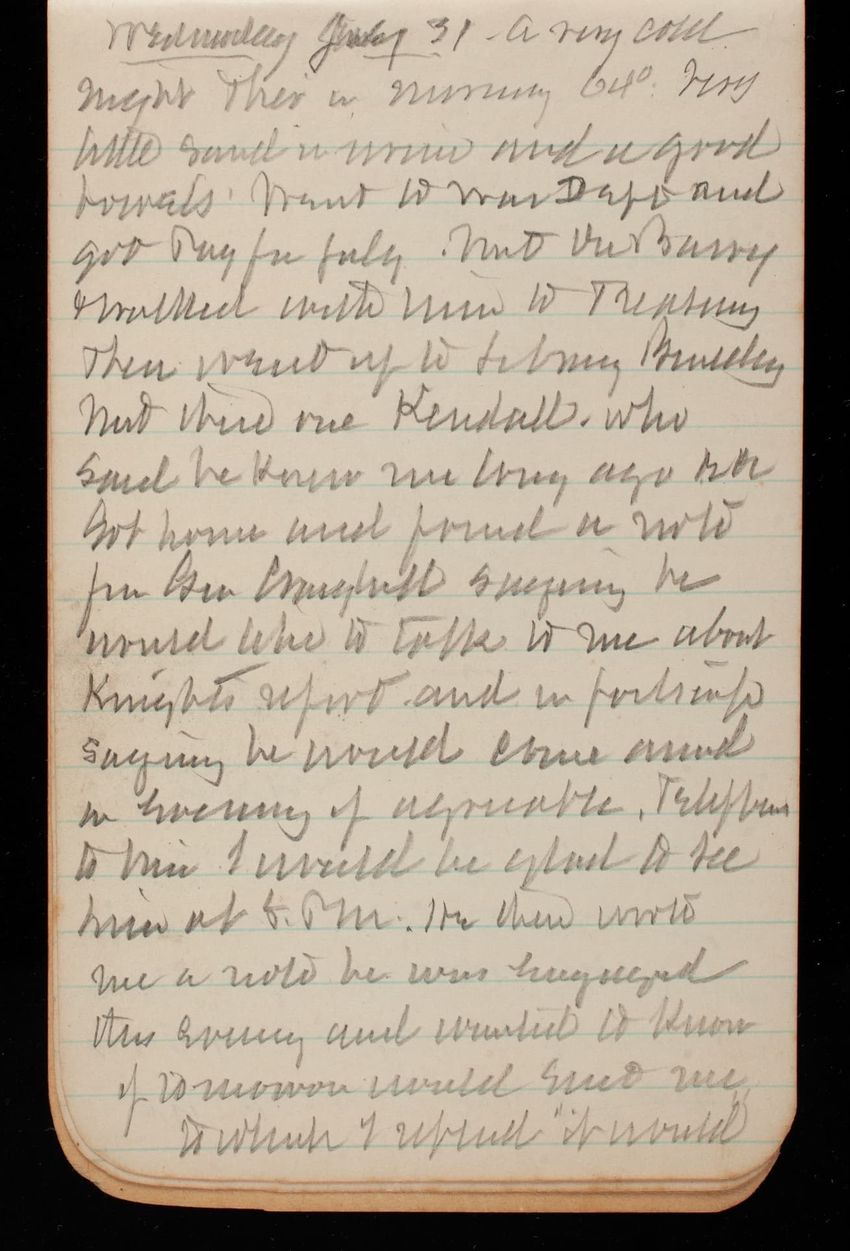 Wednesday July 31 - A very cold
night This a morning 64°. Very
little sand in urine and a good
bowels. Went to War Dept and
got Pay for July. Met
& walked with him to Treasury
Then went up to Library Building
Met there one Kendall. who
said he knew me long ago
Got home and found a note
from Gen Craighill saying he
would like to talk to me about
Knights report and in postscript
saying he would come around
in Evening if agreeable. Telephoned
to him I would be glad to see
him at 8. P.M. He then wrote
me a note he was Engaged
this Evening and wanted to know
if tomorrow would suit me
to which I replied "it would"